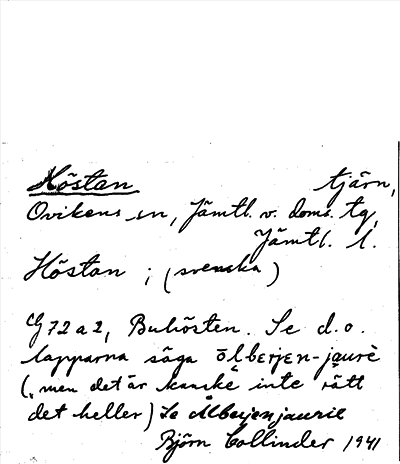 Höstan tjärn,
Ovikens sn, Jämtl. v. doms. tg,
Jämtl. l.
Höstan ; (svenska)
Cg 72 a 2, Buhösten. Se d.o.
lapparna säga ōlberjen-jaurè
(, men det är kanske inte rätt
det heller) Se Ålberjenjaurie
Björn Collinder 1941